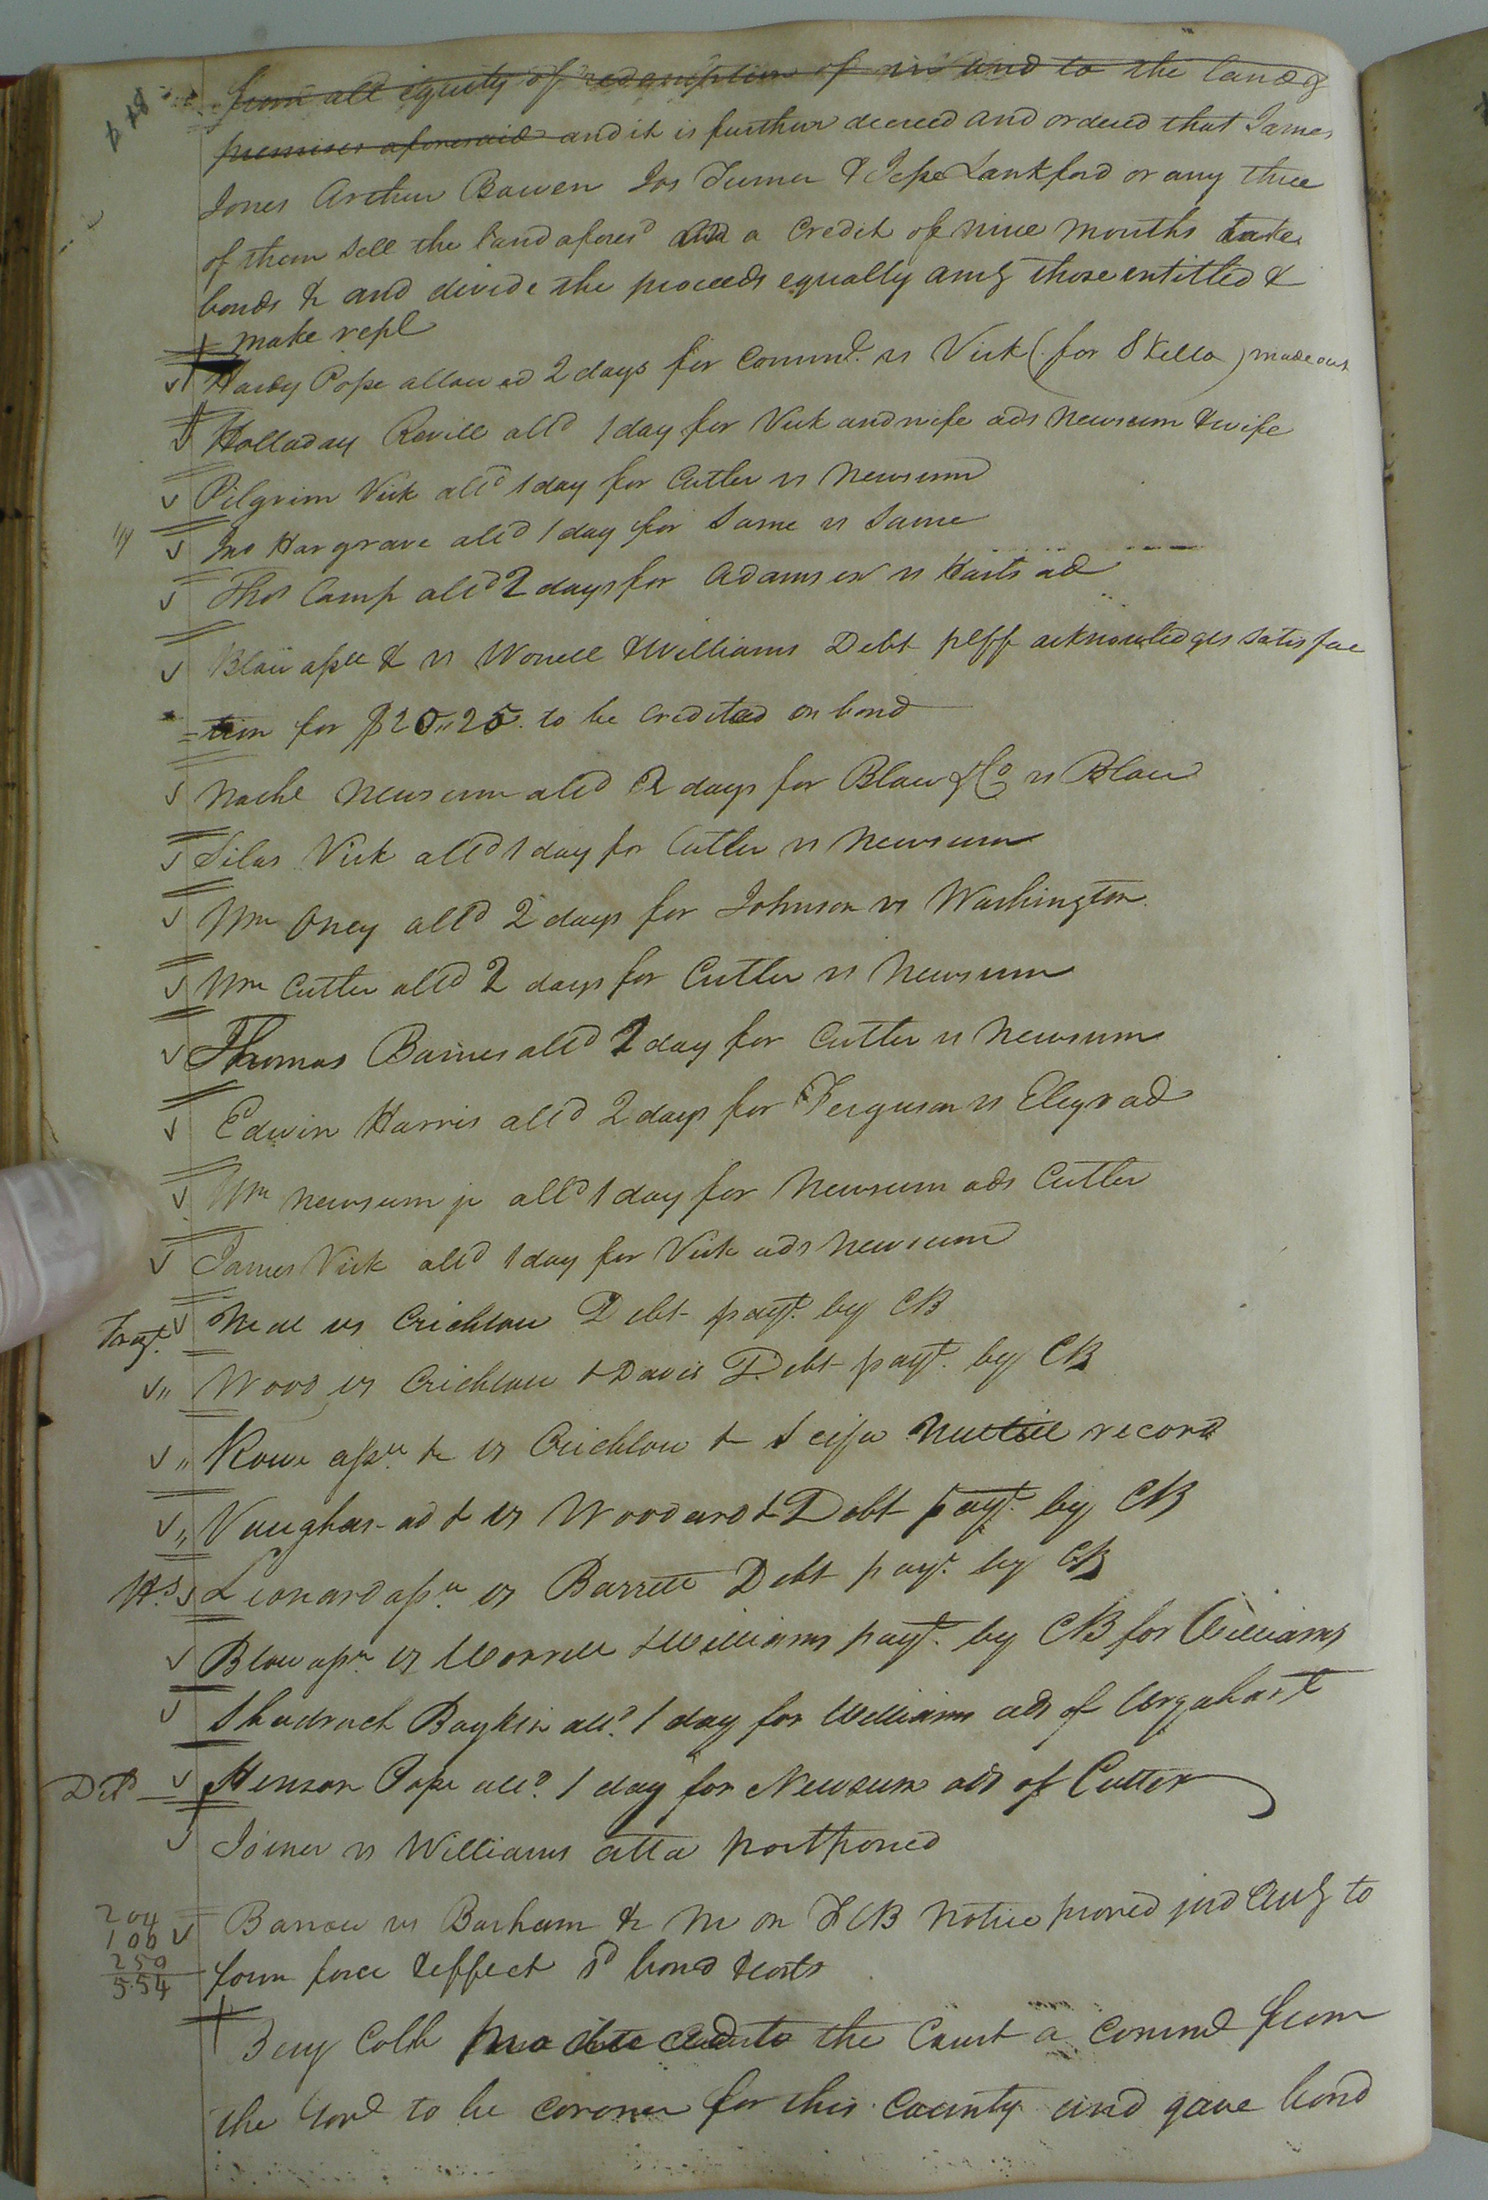 from all equity of redemption of in and to the land &
premises aforesaid and it is further decreed and ordered that James
Jones Arthur Bowen Jos Turner & Jesse Lankford or any three
of them sell the land afores^d on a Credit of nine months take
bonds & and divide the proceeds equally am^g those entitled &
make rep^t
Hardy Pope allowed 2 days for Comm^d. vs Vick (for S Kello) made out
Holladay Revill all^d 1 day for Vick and wife ads Newsum & wife
Pilgrim Vick all^d 1 day for Cutler vs Newsum
Jno Hargrave all^d 1 day for Same vs Same
Thos Camp all^d 2 days for Adams ex^r vs Harts ad
Blow ass^ee & vs Worrell & Williams Debt plff acknowledges satisfac
=tion for $20,,25. to be Credited on bond
Nathl Newsum all^d 2 days for Blow & Co vs Blow
Silas Vick all^d 1 day for Cutler vs Newsum
Wm Oney all^d 2 days for Johnson vs Washington
Wm Cutler all^d 2 days for Cutler vs Newsum
Thomas Barnes all^d 2 day for Cutler vs Newsum
Edwin Harris all^d 2 days for Ferguson vs ad
Wm Newsum jr all^d 1 day for Newsum ads Cutler
James Vick all^d 1 day for Vick ads Newsum
Neal vs Crichlow Debt pay^t. by CB
Wood vs Crichlow & Davis Debt pay^t. by CB
Rowe ass^ee. &c vs Crichlow &c Scifa Nul tiel record
Vaughan ad & vs Woodard & Debt pay^t. by CB
Leonard ass^ee vs Barrett Debt pay^t. by CB
Blow ass^ee vs Worrell & Williams pay^t. by CB for Williams
Shadrach Boykin all^d. 1 day for Williams ads of Urquhart
Henson Pope all^d. 1 day for Newsum ads of Cutler
Joiner vs Williams atta postponed
204
100
250
5.54
Barrow vs Barham &c Mo on FCB Notice proved jud Acc^g to
form force & effect s^d bond & costs
Benj Cobb produced to the Court a Comm^d from
the Gov^r to be coroner for this County and gave bond